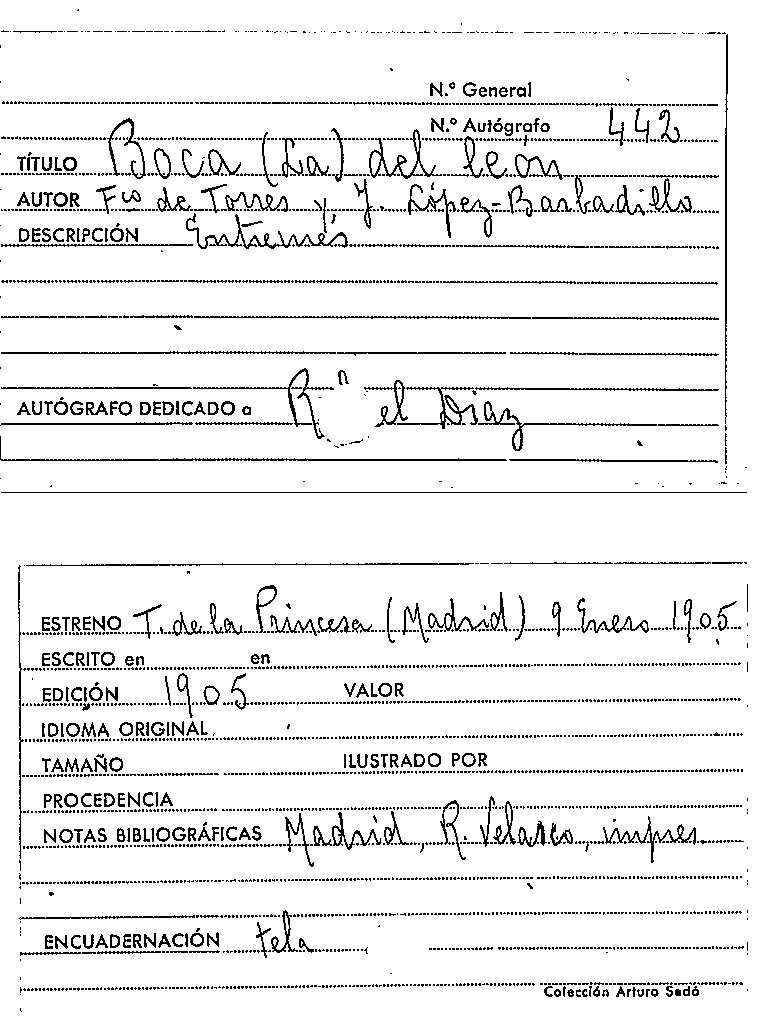 N.º General
N.º Autógrafo 442
TÍTULO Boca (La) del león
AUTOR Fco de Torres y J. López-Barbadillo
DESCRIPCIÓN Entremés
AUTÓGRAFO DEDICADO a el Diaz
ESTRENO T. de la Princesa (Madrid) 9 Enero 1905
ESCRITO en en
EDICIÓN 1905 VALOR
IDIOMA ORIGINAL
TAMAÑO ILUSTRADO POR
PROCEDENCIA
NOTAS BIBLIOGRÁFICAS Madrid, R. Velasco, impres.
ENCUADERNACIÓN tela
Colección Arturo Sedó